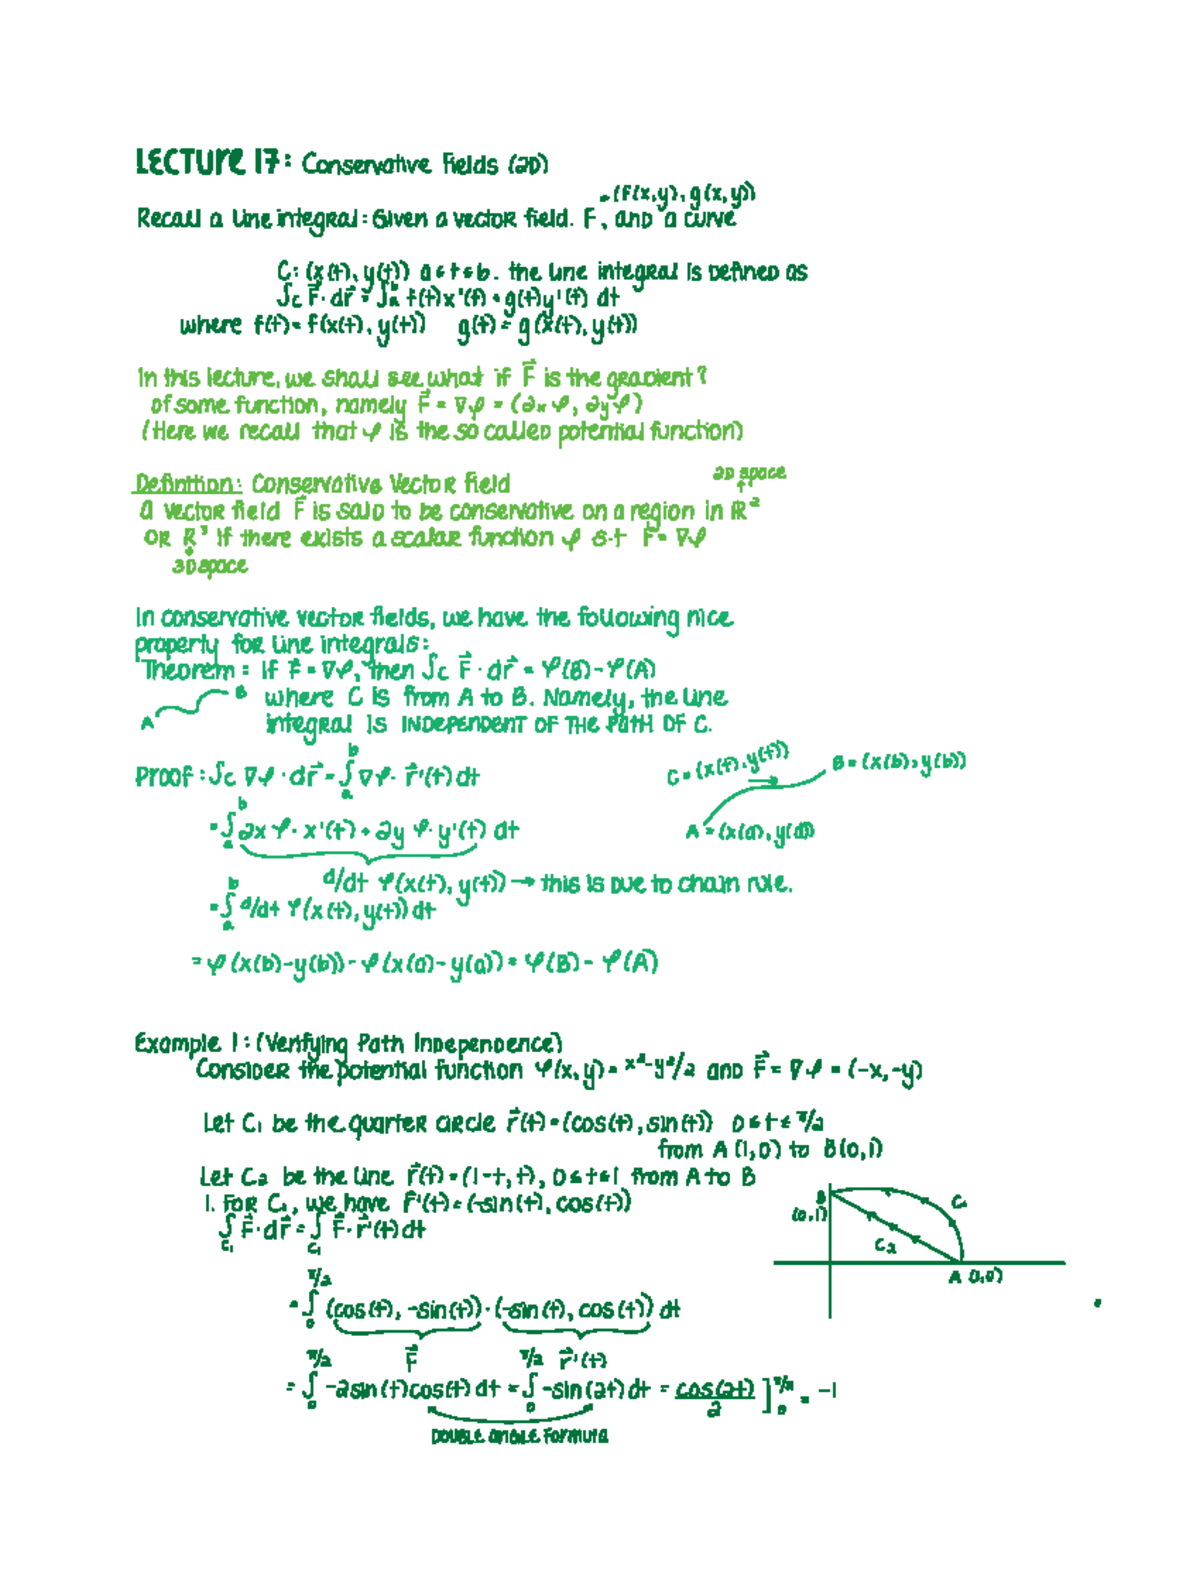 LECTURE 17: Conservative Fields (2D)
= (f(x,y), g(x,y))
Recall a line integral: Given a vector field. F, and a curve
C: (x(t), y(t)) a ≤ t ≤ b. the line integral is defined as
∫c F⃗ · dr⃗ = ∫ₐᵇ f(t)x'(t) + g(t)y'(t) dt
where f(t) = f(x(t), y(t)) g(t) = g(x(t), y(t))
In this lecture, we shall see what if F⃗ is the gradient?
of some function, namely F⃗ = ∇φ = (∂xφ, ∂yφ)
(Here we recall that φ is the so called potential function)
2D space
Definition: Conservative Vector field
a vector field F⃗ is said to be conservative on a region in R²
or R³ if there exists a scalar function φ s.t F⃗ = ∇φ
3D space
In conservative vector fields, we have the following nice
property for line integrals:
Theorem: If F⃗ = ∇φ, then ∫c F⃗ · dr⃗ = φ(B) - φ(A)
A B where C is from A to B. Namely, the line
integral is INDEPENDENT OF THE PATH OF C.
Proof: ∫c ∇φ · dr⃗ = ∫ₐᵇ ∇φ · r⃗'(t) dt
C = (x(t), y(t)) B = (x(b), y(b))
A = (x(a), y(a))
= ∫ₐᵇ ∂xφ · x'(t) + ∂yφ · y'(t) dt
d/dt φ(x(t), y(t)) → this is due to chain rule.
= ∫ₐᵇ d/dt φ(x(t), y(t)) dt
= φ(x(b)-y(b)) - φ(x(a)-y(a)) = φ(B) - φ(A)
Example 1: (Verifying Path Independence)
Consider the potential function φ(x,y) = x²-y²/2 and F⃗ = ∇φ = (-x,-y)
Let C₁ be the quarter circle r⃗(t) = (cos(t), sin(t)) 0 ≤ t ≤ π/2
from A (1,0) to B(0,1)
Let C₂ be the line r⃗(t) = (1-t, t), 0 ≤ t ≤ 1 from A to B
1. For C₁, we have r'(t) = (-sin(t), cos(t))
∫c₁ F⃗ · dr⃗ = ∫c₁ F⃗ · r⃗'(t) dt
B
(0,1)
C₁
C₂
A (1,0)
= ∫₀^π/2 (cos(t), -sin(t)) · (-sin(t), cos(t)) dt
F⃗ r⃗'(t)
= ∫₀^π/2 -2sin(t)cos(t) dt = ∫₀^π/2 -sin(2t) dt = cos(2t)/2 ]₀^π/2 = -1
DOUBLE ANGLE FORMULA